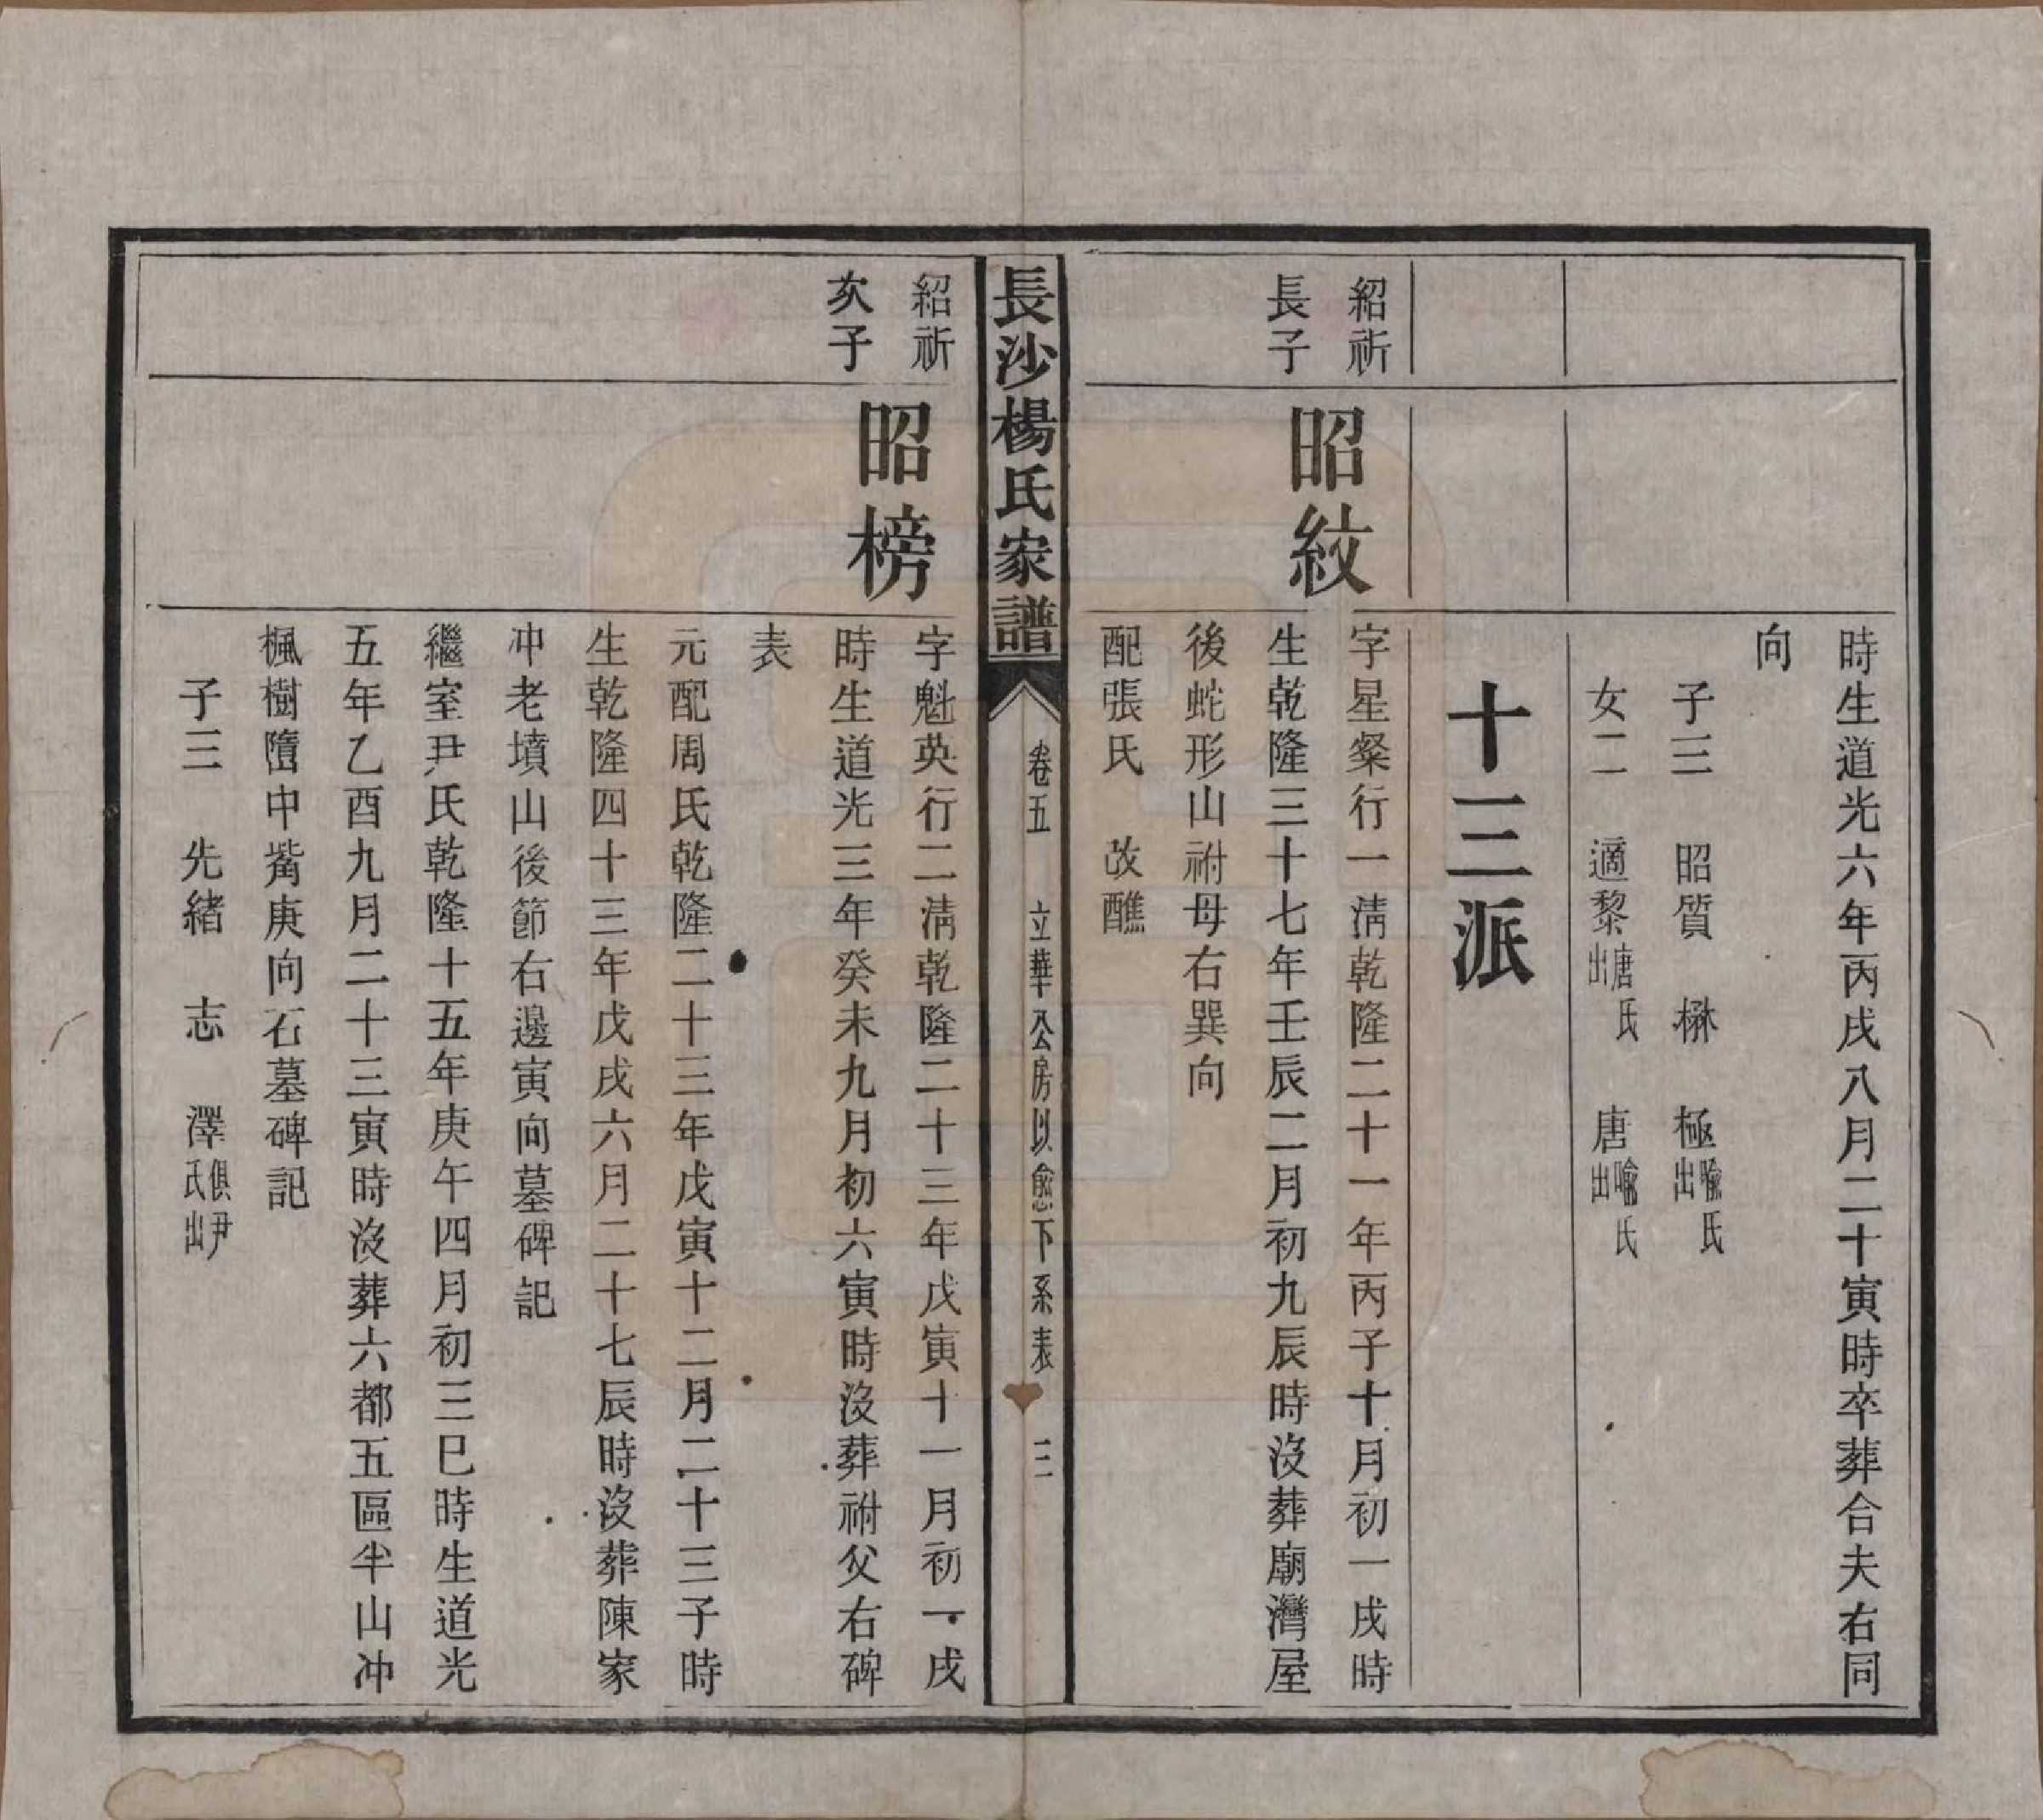 時生道光六年丙戌八月二十寅時卒葬合夫右同
向
子三 昭質 楙 極喩氏出
女二 適黎唐氏出 唐喩氏出
十三派
紹祈
長子
昭紋
字星粲行一淸乾隆二十一年丙子十月初一戌時
生乾隆三十七年壬辰二月初九辰時沒葬廟灣屋
後蛇形山祔母右巽向
配張氏 改醮
長沙楊氏家譜
卷五 立華公房以愈下系表 三
紹祈
次子
昭榜
字魁英行二淸乾隆二十三年戊寅十一月初一戌
時生道光三年癸未九月初六寅時沒葬祔父右碑
表
元配周氏乾隆二十三年戊寅十二月二十三子時
生乾隆四十三年戊戌六月二十七辰時沒葬陳家
冲老墳山後節右邊寅向墓碑記
繼室尹氏乾隆十五年庚午四月初三巳時生道光
五年乙酉九月二十三寅時沒葬六都五區半山冲
楓樹墮中觜庚向石墓碑記
子三 先緒 志 澤俱尹氏出